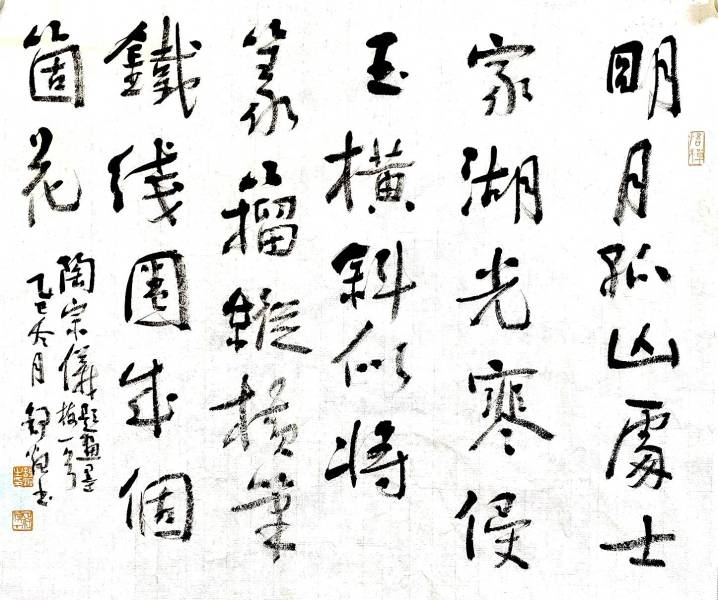 明月孤山處士
家湖光寒侵
玉橫斜似將
篆籀縱橫筆
鐵线圈成個
箇花
陶宗儀題畫墨梅一首
乙巳冬月 書